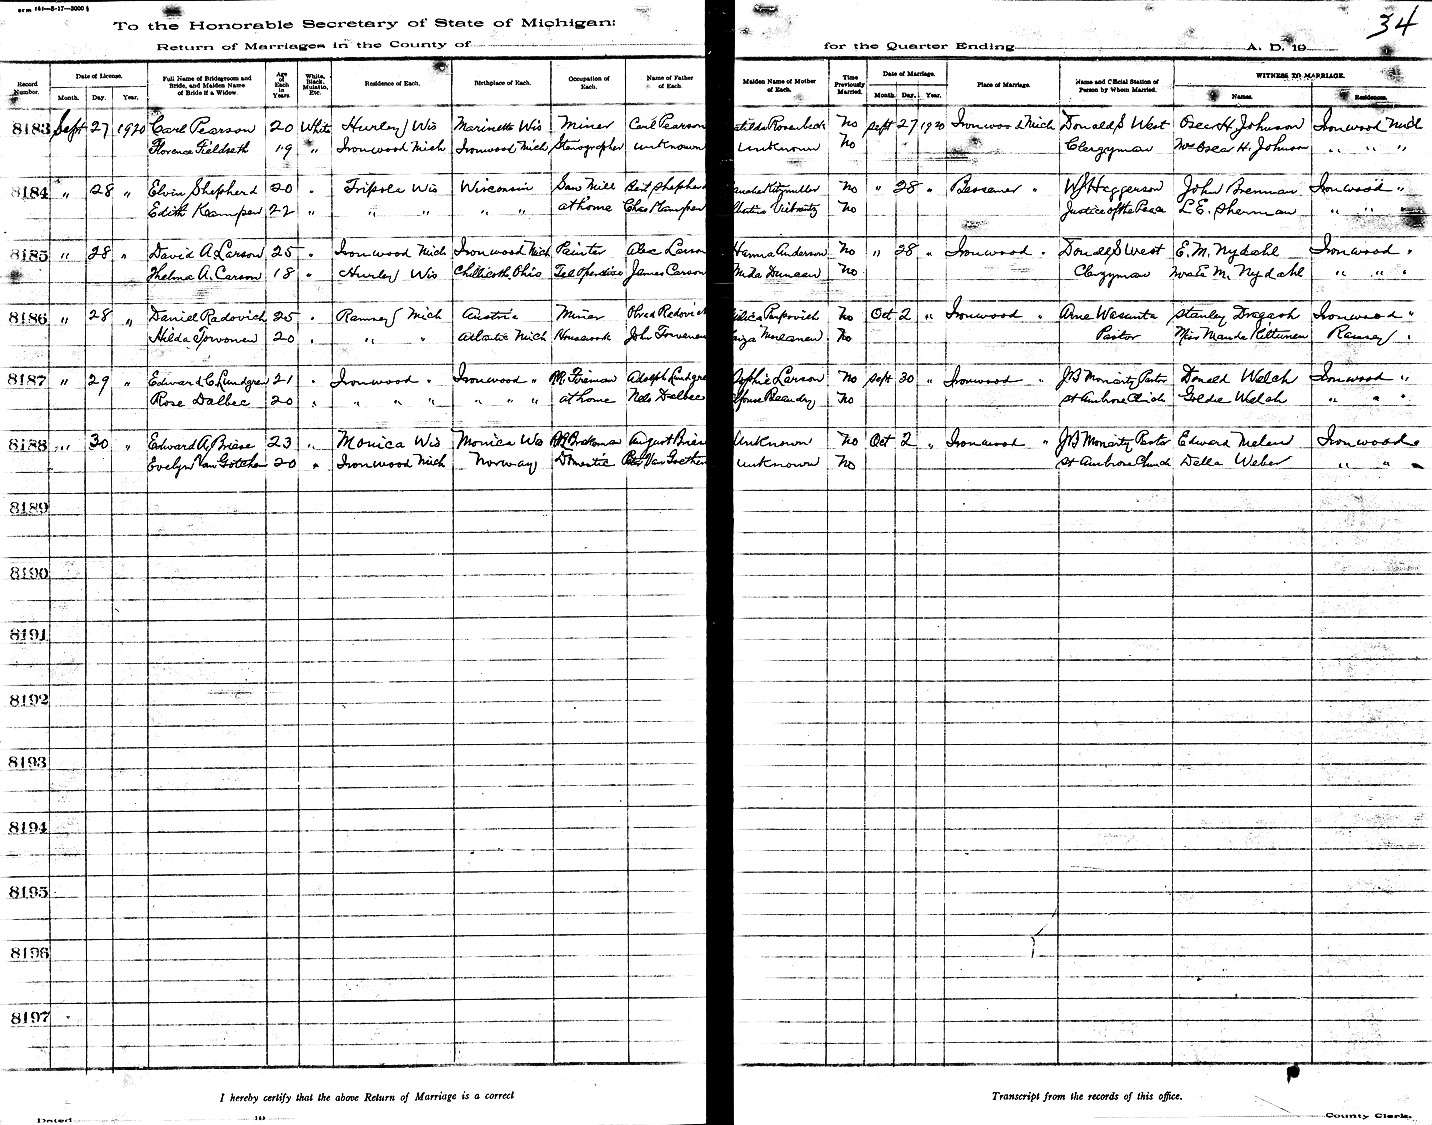 34
To the Honorable Secretary of State of Michigan:
Return of Marriages in the County of
for the Quarter Ending A. D. 19
Record Number. Date of License. Month. Day. Year. Full Name of Bridegroom and Bride, and Maiden Name of Bride if a Widow Age of Each in Years. White, Black, Mulatto, Etc. Residence of Each. Birthplace of Each. Occupation of Each. Name of Father of Each. Maiden Name of Mother of Each. Time Previously Married. Date of Marriage. Month. Day. Year. Place of Marriage. Name and Official Station of Person by Whom Married. WITNESS TO MARRIAGE. Names. Residences.
8183 Sept 27 1920 Carl Pearson 20 White Hurley Wis Marinette Wis Miner Carl Pearson No Sept 27 1920 Ironwood Mich Donald S West Oscar H. Johnson Ironwood Mich
Florence Fieldseth 19 " Ironwood Mich Ironwood Mich Stenographer unknown unknown No Clergyman Mrs Oscar H. Johnson " " "
8184 " 28 " Elvin Shepherd 20 " Tripola Wis Wisconsin Saw Mill Bert Shepherd No " 28 " Bessemer " W J Haggerson John Brennan Ironwood "
Edith Kamper 22 " " " " " at home Chas Kamper No Justice of the Peace L E. Sherman " " "
8185 " 28 " David A Larson 25 " Ironwood Mich Ironwood Mich Painter Alec Larson Hanna Anderson No " 28 " Ironwood " Donald S West E. M. Nydahl Ironwood "
Thelma A. Carson 18 " Hurley Wis Chillicoth Ohio James Carson Duncan No Clergyman Mrs E M. Nydahl " " "
8186 " 28 " Daniel Radovich 25 " Ramsey Mich Austria Miner Radovich No Oct 2 " Ironwood " Arne Wasunta Stanley Dragash Ironwood "
Hilda Torvonen 20 " " " Atlantic Mich Housework John Torvonen No Pastor Miss Manda Kittunen Ramsey "
8187 " 29 " Edward C Lundgren 21 " Ironwood " Ironwood " RR Fireman Adolph Lundgre Sophie Larson No Sept 30 " Ironwood " J B Moriarty Pastor Donald Welch Ironwood "
Rose Dalbec 20 " " " " " " " at home Nels Dalbec Beaudry No St Ambrose Church Goldie Welch " " "
8188 " 30 " Edward A. Briese 23 " Monica Wis Monica Wis RR Brakeman August Bries unknown No Oct 2 " Ironwood " J B Moriarty Pastor Edward Ironwood "
Evelyn Van Gotthen 20 " Ironwood Mich Norway Domestic Van Goethen unknown No St Ambrose Church Della Weber " "
8189
8190
8191
8192
8193
8194
8195
8196
8197
I hereby certify that the above Return of Marriage is a correct
Transcript from the records of this office.
Dated 19
County Clerk.